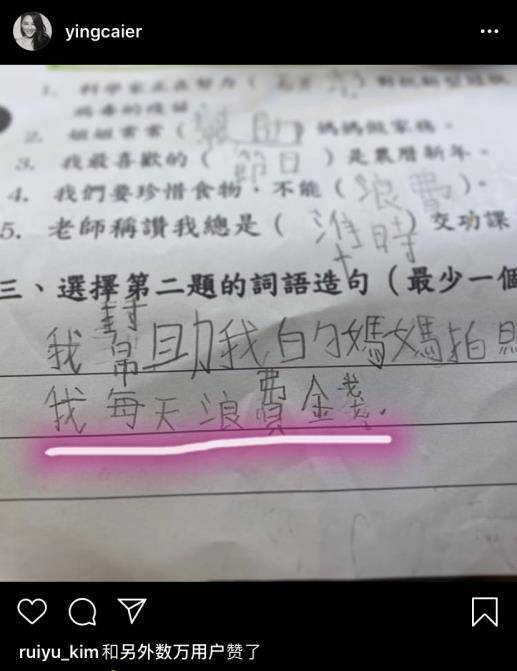 yingcaier
1. 科學家正在努力(
病毒的疫苗。
2. 姐姐常常(幫助)媽媽做家務。
3. 我最喜歡的(節日)是農曆新年。
4. 我們要珍惜食物，不能(浪費)。
5. 老師稱讚我總是(準時)交功課
三、選擇第二題的詞語造句(最少一個
我幫助我的媽媽拍照
我每天浪費金錢。
ruiyu_kim和另外数万用户赞了